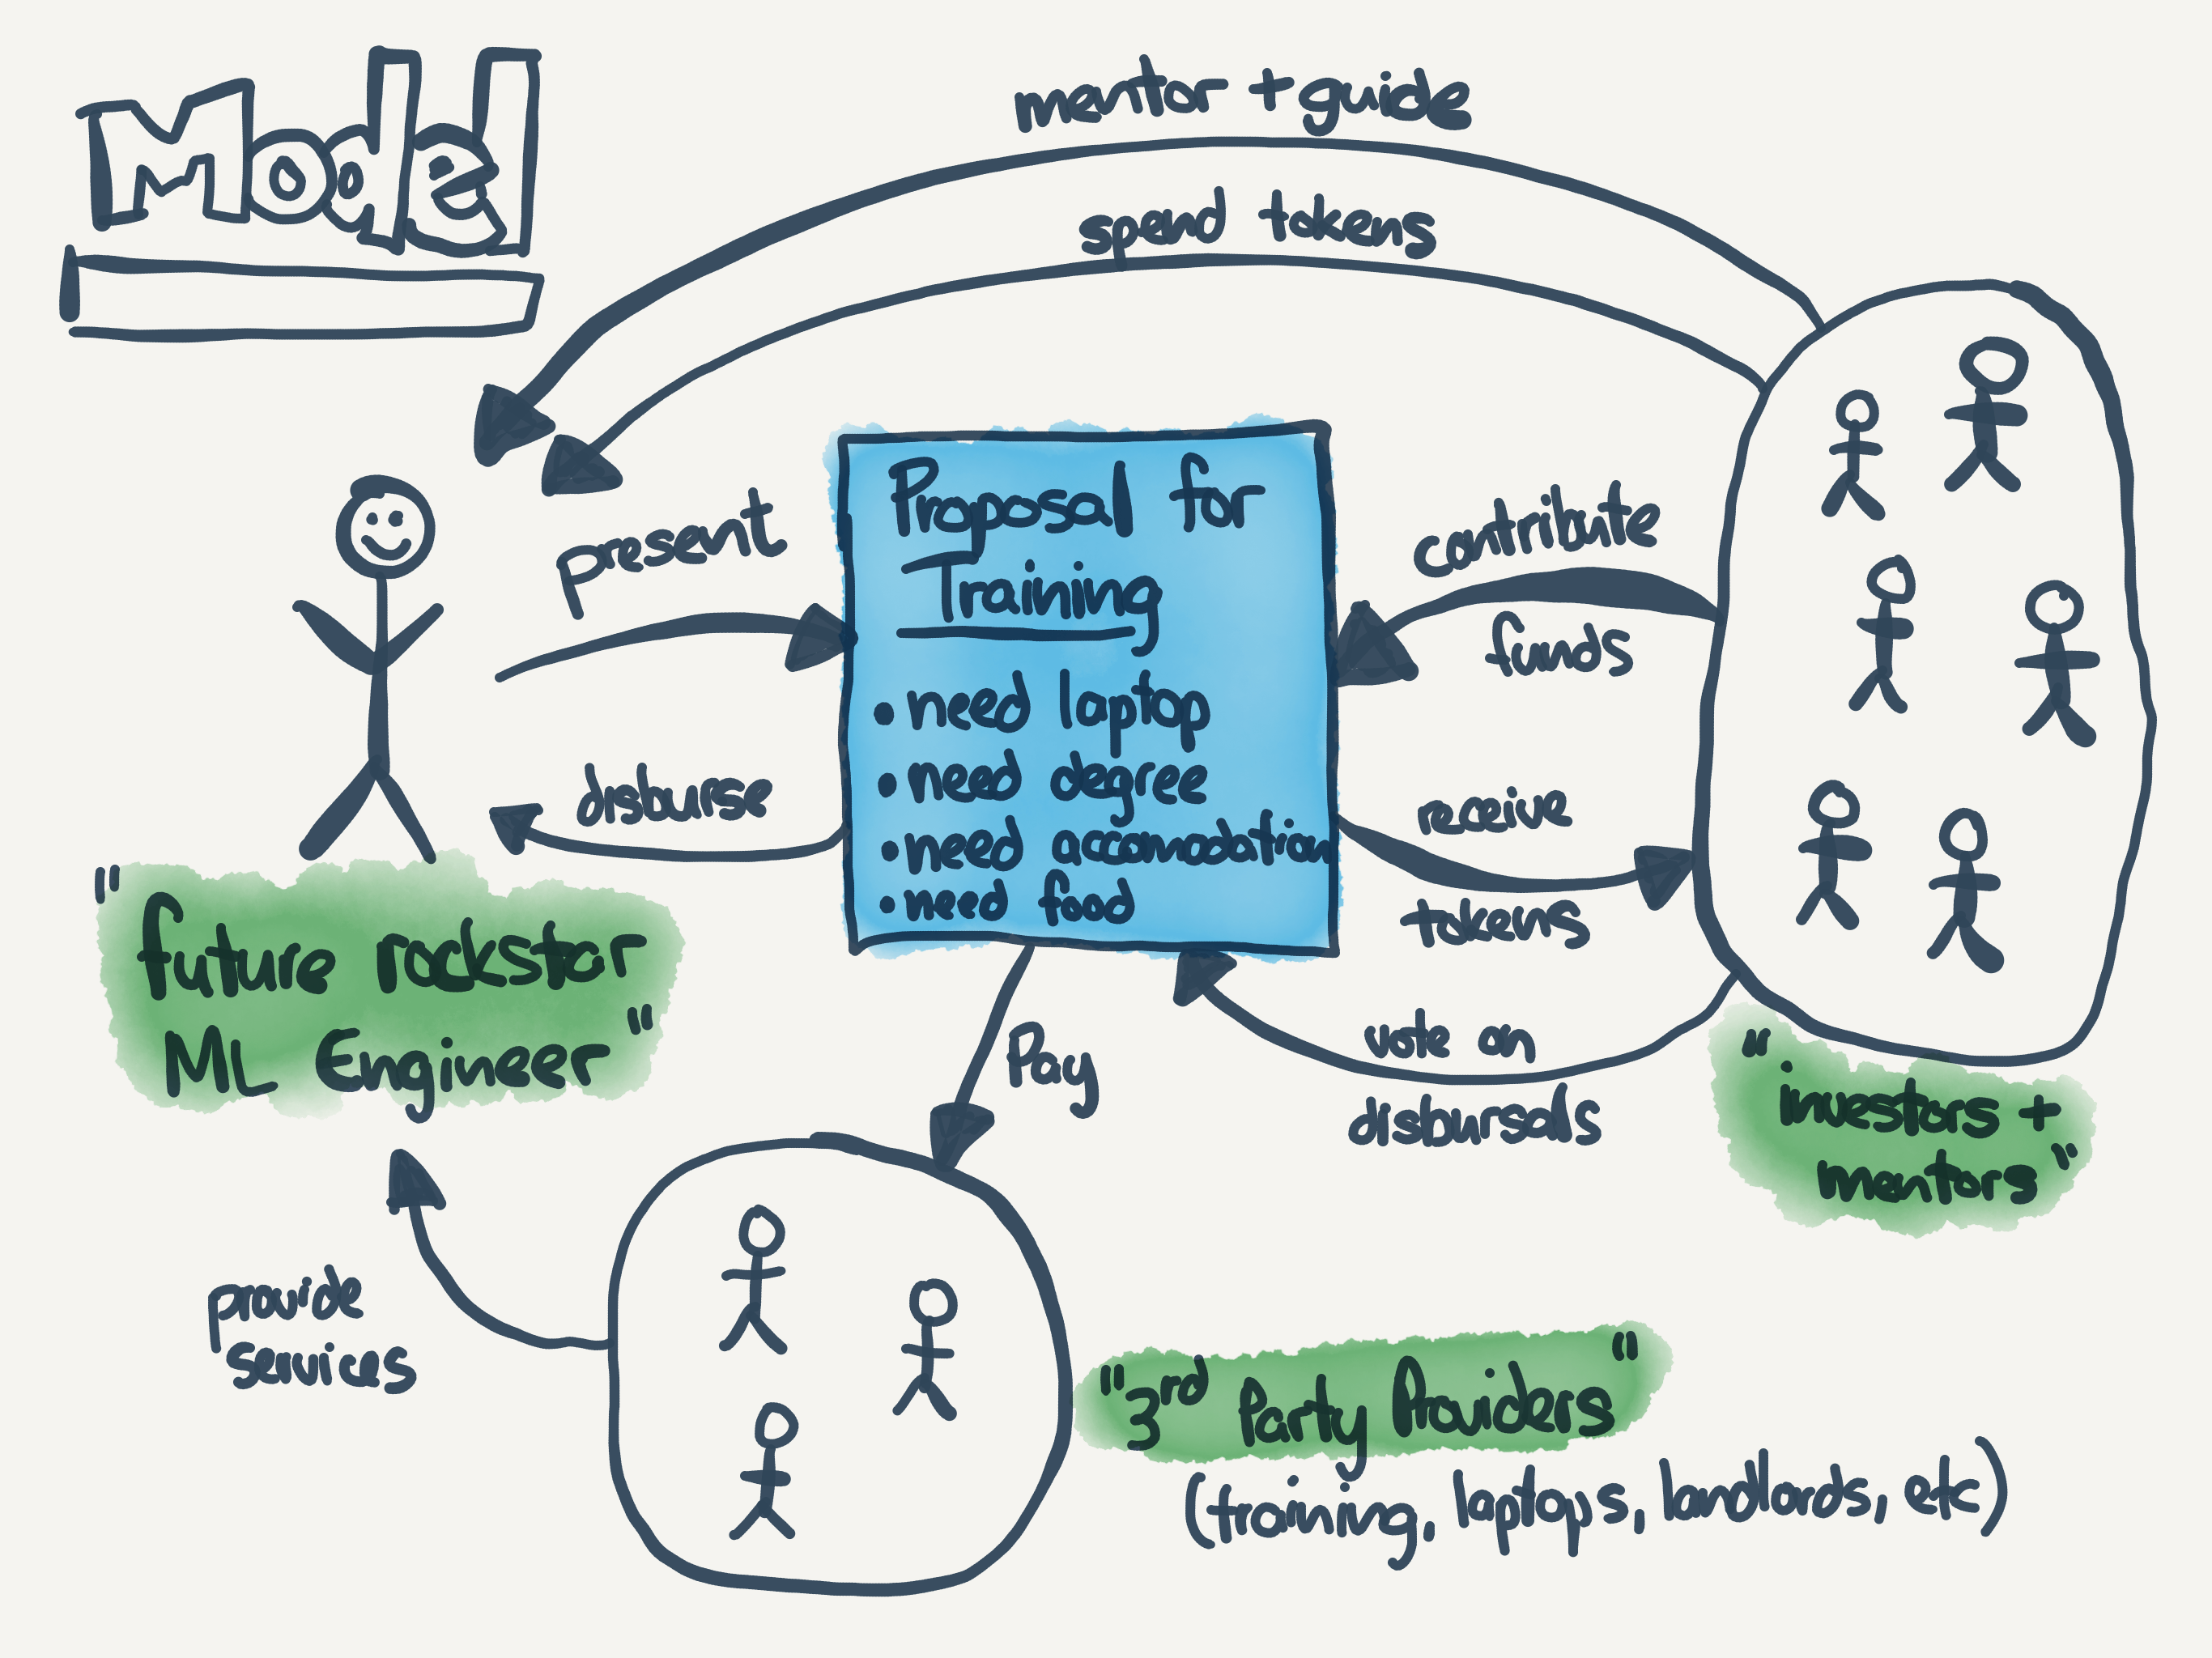 Model
mentor + guide
spend tokens
present
Proposal for
Training
• need laptop
• need degree
• need accomodation
• need food
contribute
funds
disburse
receive
tokens
"future rockstar
ML Engineer"
Pay
vote on
disbursals
"investors +
mentors"
provide
services
"3rd Party Providers"
(training, laptops, landlords, etc)